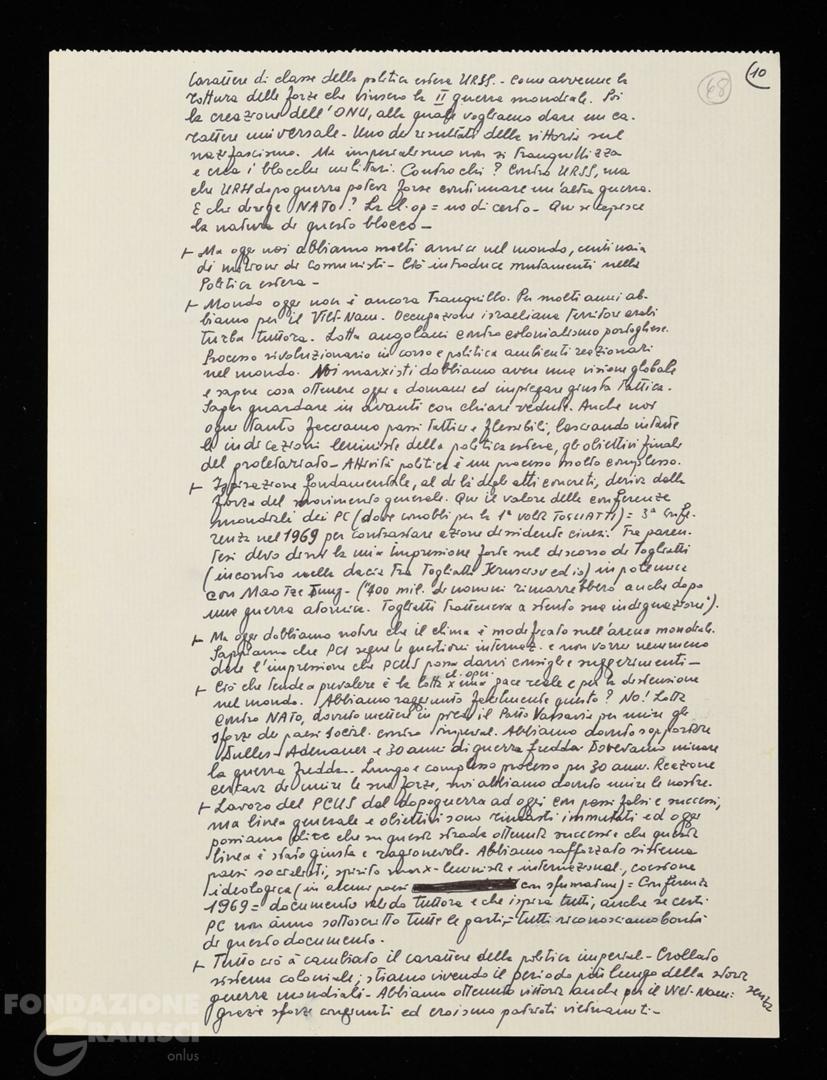 68
10
Carattere di classe della politica estera URSS. - Come avvenne la
rottura delle forze che vinsero la II guerra mondiale. Poi
la creazione dell'ONU, alla quale vogliamo dare un ca-
rattere universale - Uno dei risultati della vittoria sul
nazifascismo. Ma imperialismo non si tranquillizza
e crea i blocchi militari. Contro chi? Contro URSS, ma
che URSS dopo guerra poteva forse continuare un'altra guerra.
E che dirige NATO? La cl. op = no di certo - Qui si capisce
la natura di questo blocco -
⊢ Ma oggi noi abbiamo molti amici nel mondo, centinaia
di milioni di comunisti - Ciò introduce mutamenti nella
Politica estera -
⊢ Mondo oggi non è ancora tranquillo. Per molti anni ab-
biamo per il Viet-Nam. Occupazione israeliana territori arabi
turba tuttora. Lotta angolani contro colonialismo portoghese.
Processo rivoluzionario in corso e politica ambienti reazionari
nel mondo. Noi marxisti dobbiamo avere una visione globale
e sapere cosa ottenere oggi e domani ed impiegare giusta tattica.
Saper guardare in avanti con chiare vedute. Anche noi
ogni tanto facciamo passi tattici e flessibili, lasciando intatte
le indicazioni leniniste della politica estera, gli obiettivi finali
del proletariato - Attività politica è un processo molto complesso.
⊢ Ispirazione fondamentale, al di là degli atti concreti, deriva dalla
forza del movimento generale. Qui il valore delle conferenze
mondiali dei PC (dove conobbi per la 1ª volta TOGLIATTI) = 3ª Confe-
renza nel 1969 per contrastare azione dissidente cinesi. Tra paren-
tesi devo dirvi la mia impressione forte sul discorso di Togliatti
(incontro nella dacia tra Togliatti Krusciov ed io) in polemica
con Mao Tze Tung - ("400 mil. di uomini rimarrebbero anche dopo
una guerra atomica. Togliatti tratteneva a stento sua indignazione").
⊢ Ma oggi dobbiamo notare che il clima è modificato nell'arena mondiale.
Sappiamo che PCI segue le questioni internaz. e non vorrei nemmeno
dare l'impressione che PCUS possa darvi consigli e suggerimenti -
cl. oper.
⊢ Ciò che tende a prevalere è la lotta x una pace reale e per la distensione
nel mondo. Abbiamo raggiunto facilmente questo? No! Lotta
contro NATO, dovuto mettere in piedi il Patto Varsavia per unire gli
sforzi dei paesi social. contro imperial. Abbiamo dovuto sopportare
Dulles - Adenauer e 30 anni di guerra fredda. Dovevamo minare
la guerra fredda. Lungo e complesso processo per 30 anni. Reazione
cercava di unire le sue forze, noi abbiamo dovuto unire le nostre.
⊢ Lavoro del PCUS dal dopoguerra ad oggi con passi falsi e successi,
ma linea generale e obiettivi sono rimasti immutati ed oggi
possiamo dire che su questa strada ottenuti successi e che questa
linea è stata giusta e ragionevole. Abbiamo rafforzato sistema
paesi socialisti, spirito marx-leninista e internazional., coesione
ideologica (in alcuni paesi con sfumature) = Conferenza
1969 = documento valido tuttora e che ispira tutti, anche se certi
PC non ànno sottoscritto tutte le parti, - tutti riconosciamo bontà
di questo documento.
⊢ Tutto ciò à cambiato il carattere della politica imperial - Crollato
sistema coloniale; stiamo vivendo il periodo più lungo della storia senza
guerre mondiali - Abbiamo ottenuto vittoria anche per il Viet-Nam:
grazie sforzi congiunti ed eroismo patrioti vietnamiti -
FONDAZIONE
GRAMSCI
onlus